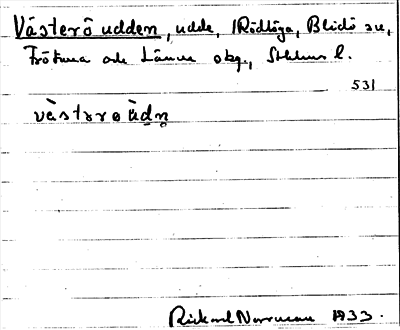 Västerö udden, udde, Rödlöga, Blidö sn,
Frötuna och Länna skg., Sthlms l.
531
västərø ùdn̥
Rickard Norrman 1933.